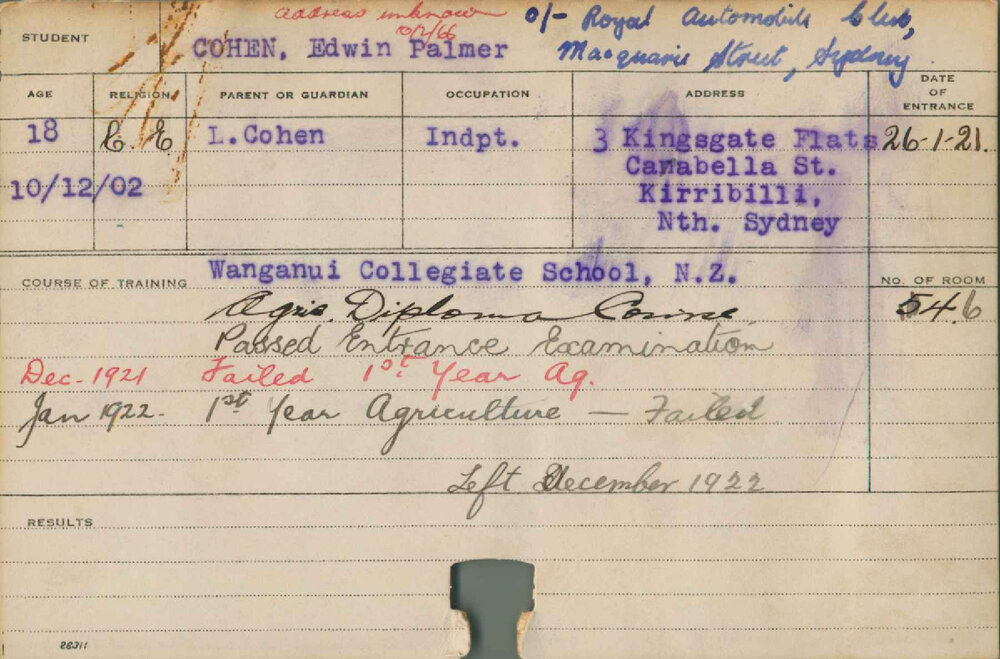 address unknown
10/2/66
c/- Royal Automobile Club,
Macquarie Street, Sydney.
STUDENT
COHEN, Edwin Palmer
AGE
RELIGION
PARENT OR GUARDIAN
OCCUPATION
ADDRESS
DATE
OF
ENTRANCE
18
C. E.
L.Cohen
Indpt.
3 Kingsgate Flats
26-1-21.
10/12/02
Carabella St.
Kirribilli,
Nth. Sydney
COURSE OF TRAINING
Wanganui Collegiate School, N.Z.
NO. OF ROOM
Agric. Diploma Course
54.6
Passed Entrance Examination
Dec. 1921 Failed 1st Year Ag.
Jan 1922. 1st Year Agriculture — Failed
Left December 1922
RESULTS